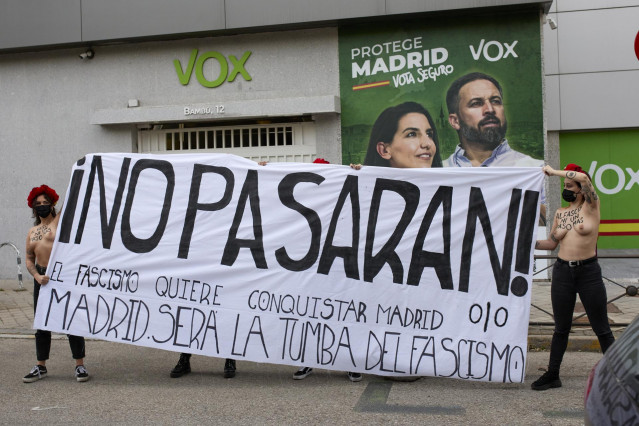 VOX
BAMBÚ, 12
PROTEGE
MADRID
VOTA SEGURO
VOX
VOX
¡NO PASARAN!
EL FASCISMO QUIERE CONQUISTAR MADRID
MADRID. SERÁ LA TUMBA DEL FASCISMO
AL FASCISMO
NI UN
PASO MÁS